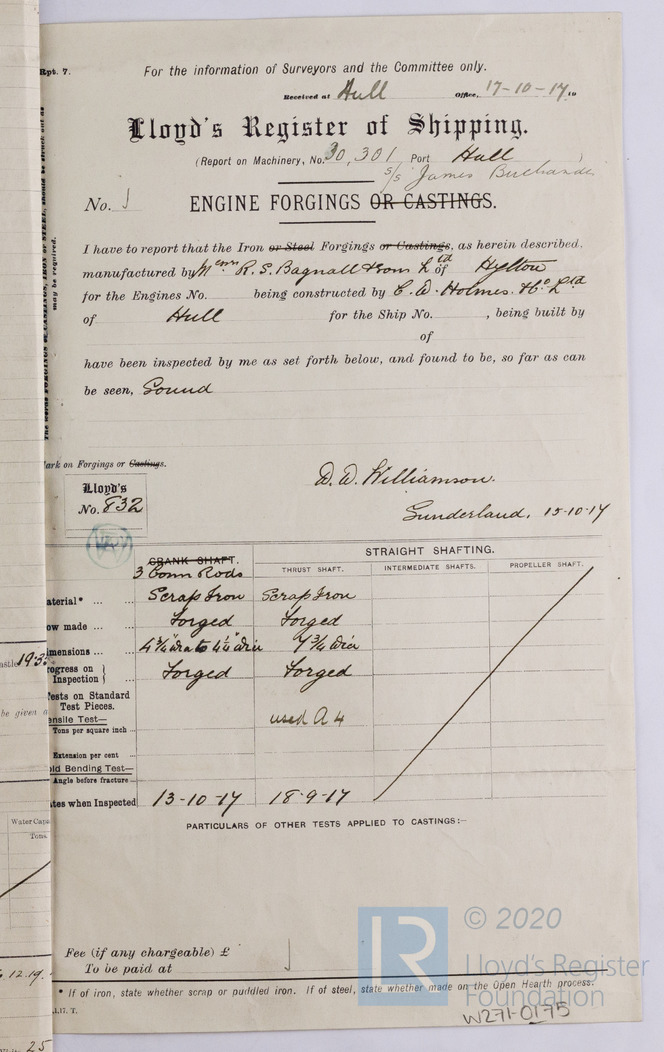 Rpt. 7.
For the information of Surveyors and the Committee only.
Received at Hull Office, 17-10-17 19
Lloyd's Register of Shipping.
(Report on Machinery, No. 30,301 Port Hull
s/s James Buchanan
No.
ENGINE FORGINGS OR CASTINGS.
I have to report that the Iron or Steel Forgings or Castings, as herein described,
manufactured by Messrs R. S. Bagnall & Sons Ltd of Hylton
for the Engines No. being constructed by C. D. Holmes & Co Ltd
of Hull for the Ship No. , being built by
of
have been inspected by me as set forth below, and found to be, so far as can
be seen, Sound
may be required.
ark on Forgings or Castings.
Lloyd's
No. 832
D. D. Williamson.
Sunderland, 15-10-17
STRAIGHT SHAFTING.
CRANK SHAFT.
3 Conn Rods
THRUST SHAFT. INTERMEDIATE SHAFTS. PROPELLER SHAFT.
aterial* ... ... Scrap Iron Scrap Iron
ow made ... ... Forged Forged
imensions ... ... 4 3/4" dia to 4 1/4" dia 7 3/4 dia
rogress on } Inspection } ... Forged Forged
ests on Standard
Test Pieces.
ensile Test— used A 4
Tons per square inch ...
Extension per cent ...
ld Bending Test—
Angle before fracture ...
tes when Inspected 13-10-17 18-9-17
PARTICULARS OF OTHER TESTS APPLIED TO CASTINGS:—
Fee (if any chargeable) £
To be paid at
* If of iron, state whether scrap or puddled iron. If of steel, state whether made on the Open Hearth process.
1,17. T.
© 2020
Lloyd's Register
Foundation
W271-0175
astle 193
be given a
Water Capa
Tons.
12.19.
25